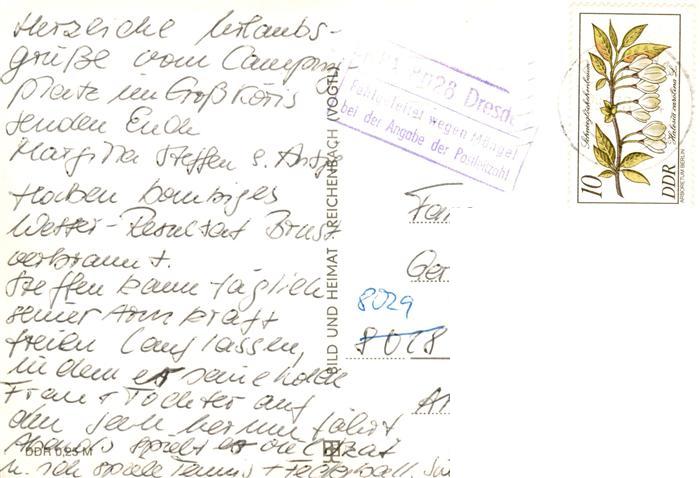 Herzliche Urlaubs-
grüße vom Camping
platz in Groß Köris
senden Euch
Margitta Steffen u. Antje
Haben bombiges
Wetter - Resultat Brust
verbrannt.
Steffen kann täglich
seiner Armkraft
freien Lauf lassen,
in dem er seine holde
Frau + Töchter auf
den herum fährt
Abends spielt er
u. ich spiele Tennis + Federball.
DDR 0,25 M
BILD UND HEIMAT REICHENBACH (VOGTL
8028 Dresden
Fehlgeleitet wegen Mängel
bei der Angabe der Postleitzahl
Fam
Ger
8029
8018
Schneeglöckchenbaum
Halesia carolina L.
10
DDR
ARBORETUM BERLIN